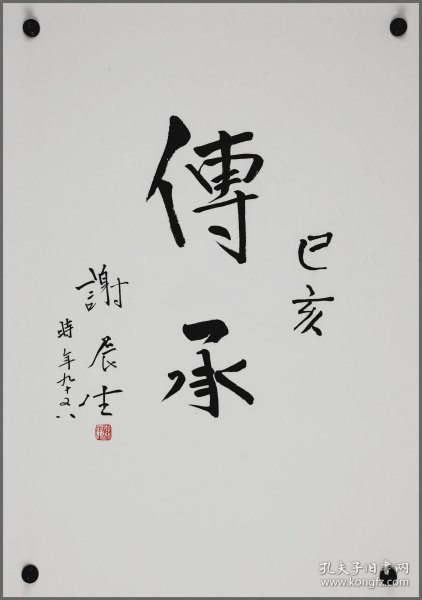 己亥
傳承
謝辰生
時年九十又八
孔夫子旧书网
www.kongfz.com